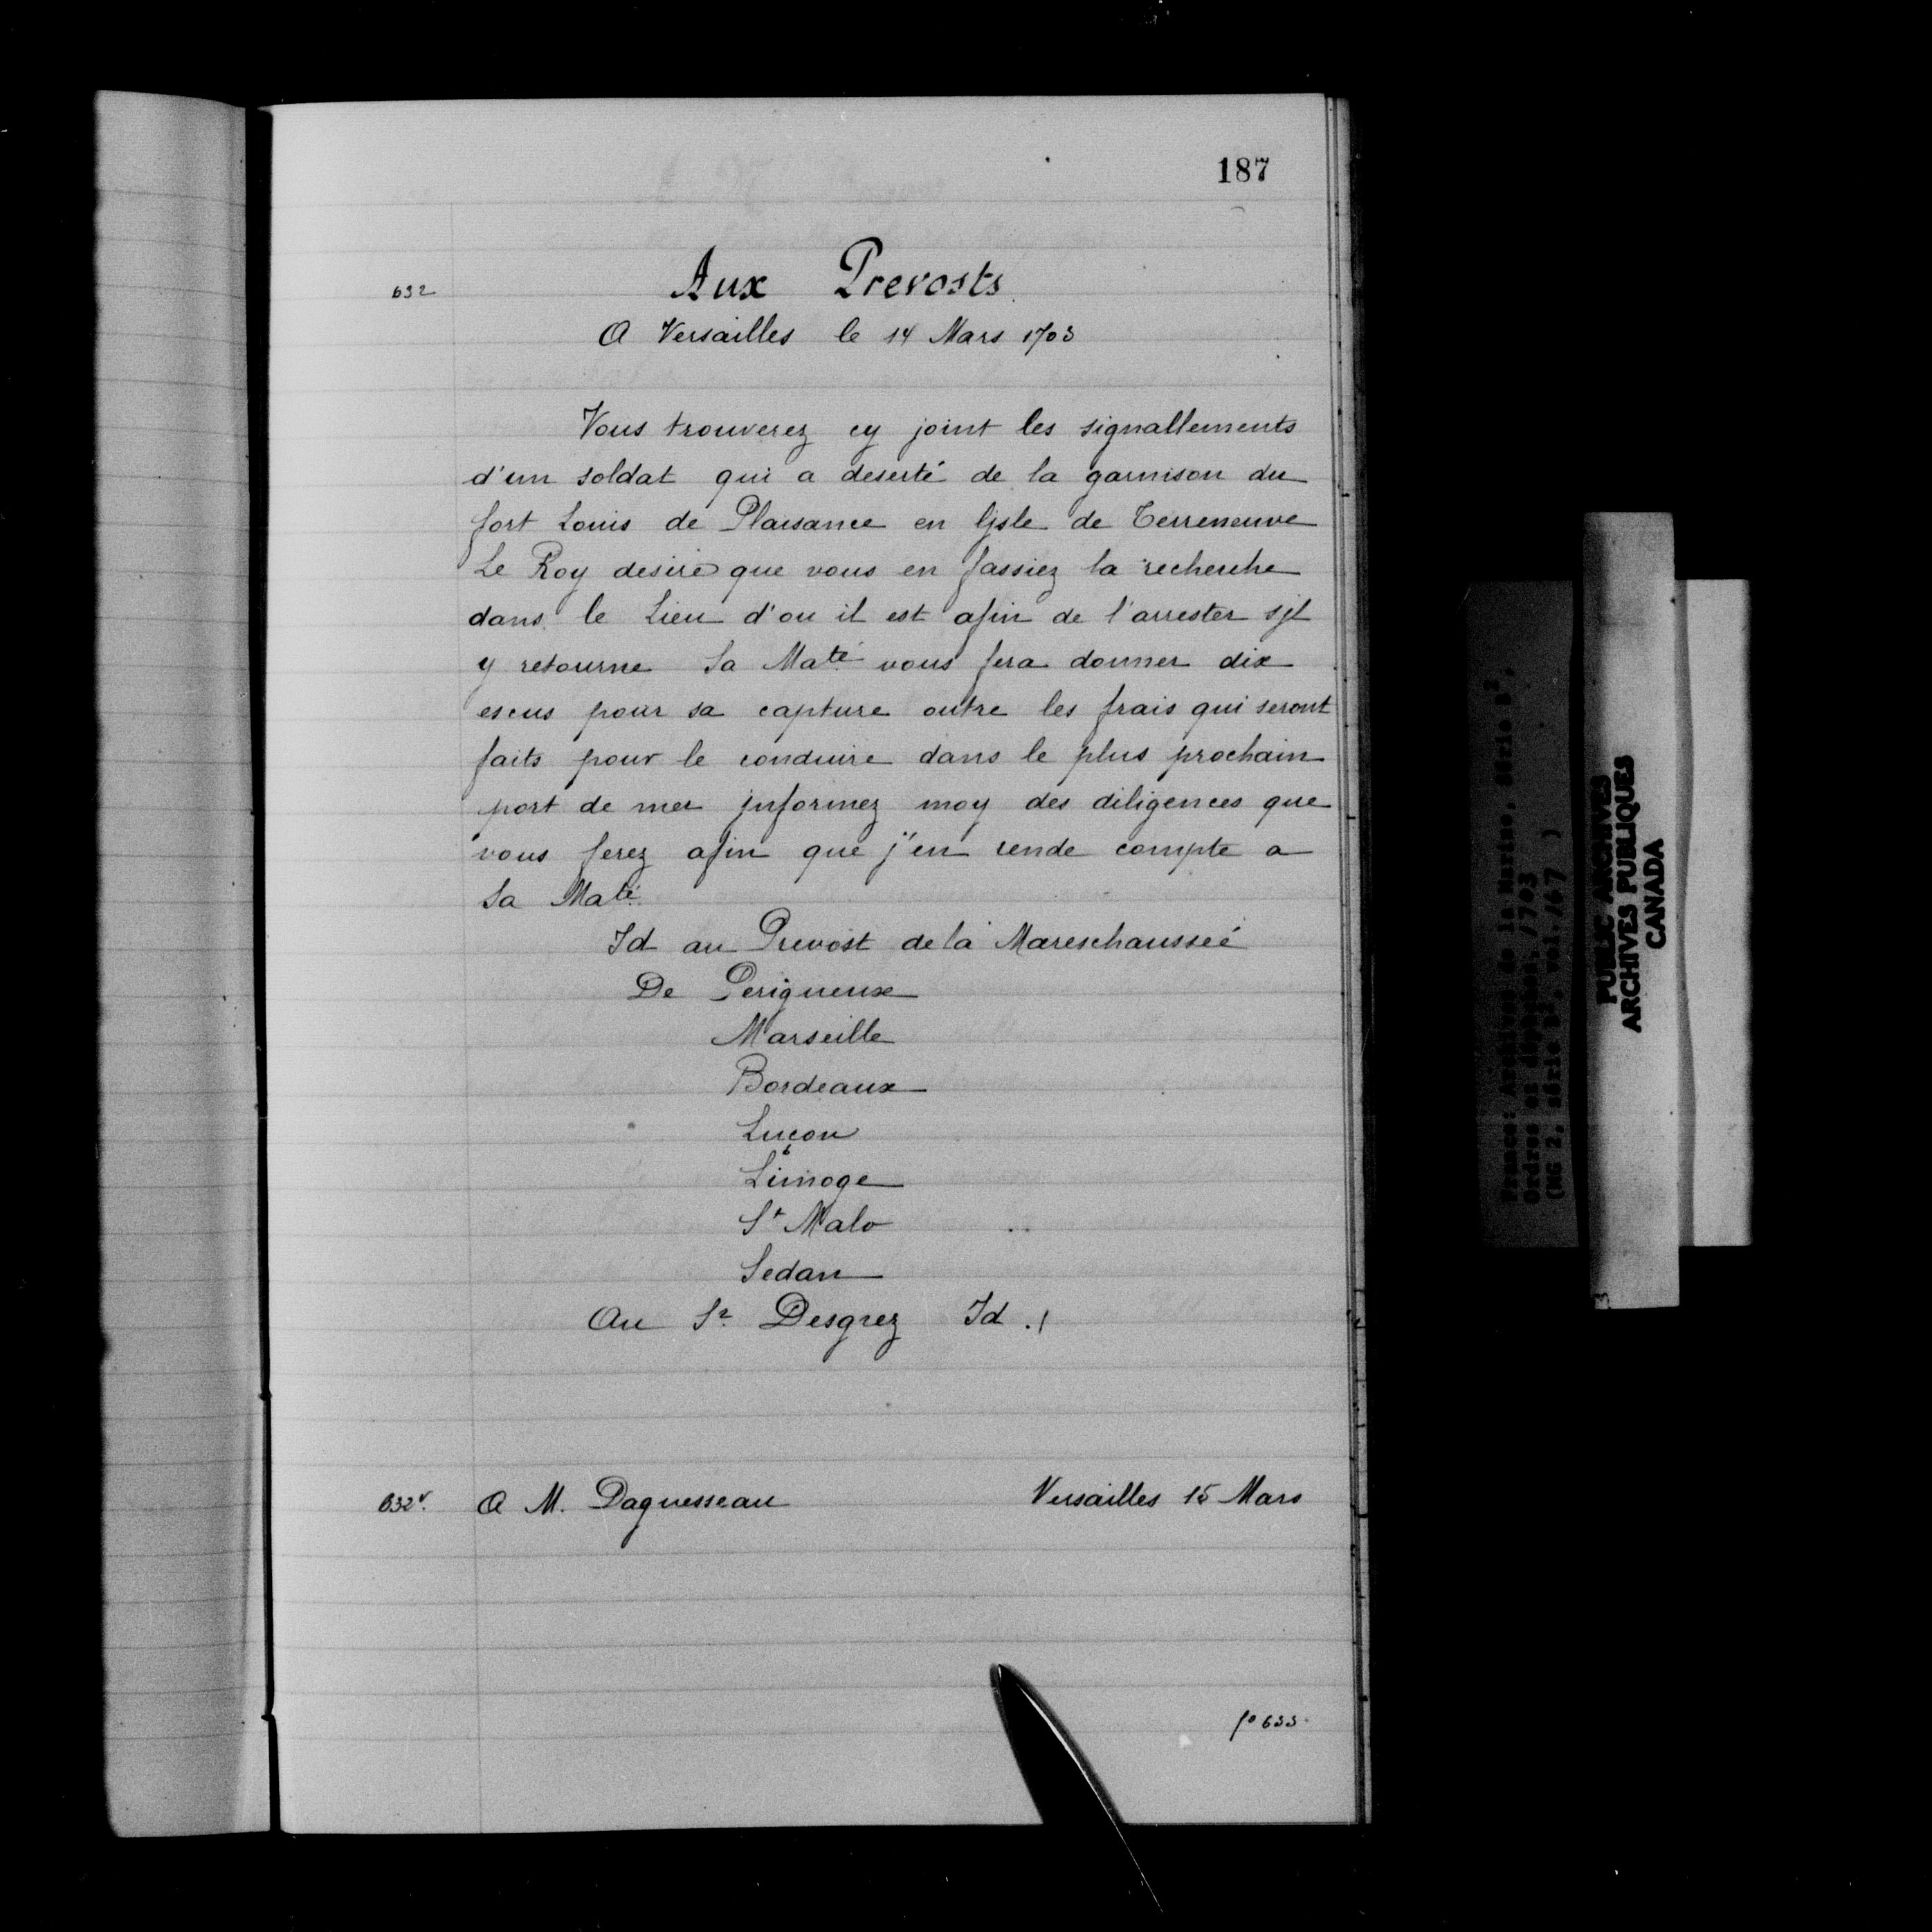 187
632
Aux Prevosts
A Versailles le 14 Mars 1703
Vous trouverez cy joint les signallements
d'un soldat qui a deserté de la garnison du
fort Louis de Plaisance en ljsle de Terreneuve
Le Roy desire que vous en fassiez la recherche
dans le Lieu d'ou il est afin de l'arrester sjl
y retourne Sa Maté vous fera donner dix
escus pour sa capture outre les frais qui seront
faits pour le conduire dans le plus prochain
port de mer jnformez moy des diligences que
vous ferez afin que j'en rende compte a
Sa Maté
Id au Prevost de la Mareschaussée
De Perigueux
Marseille
Bordeaux
Luçon
Limoge
St Malo
Sedan
Au Sr Desgrez Id ./
632v. A M. Daguesseau Versailles 15 Mars
fo 633.
France: Archives de la Marine, Série B2,
Ordres et dépêches, 1703
(MG 2, série B2, vol. 167 )
PUBLIC ARCHIVES
ARCHIVES PUBLIQUES
CANADA
3